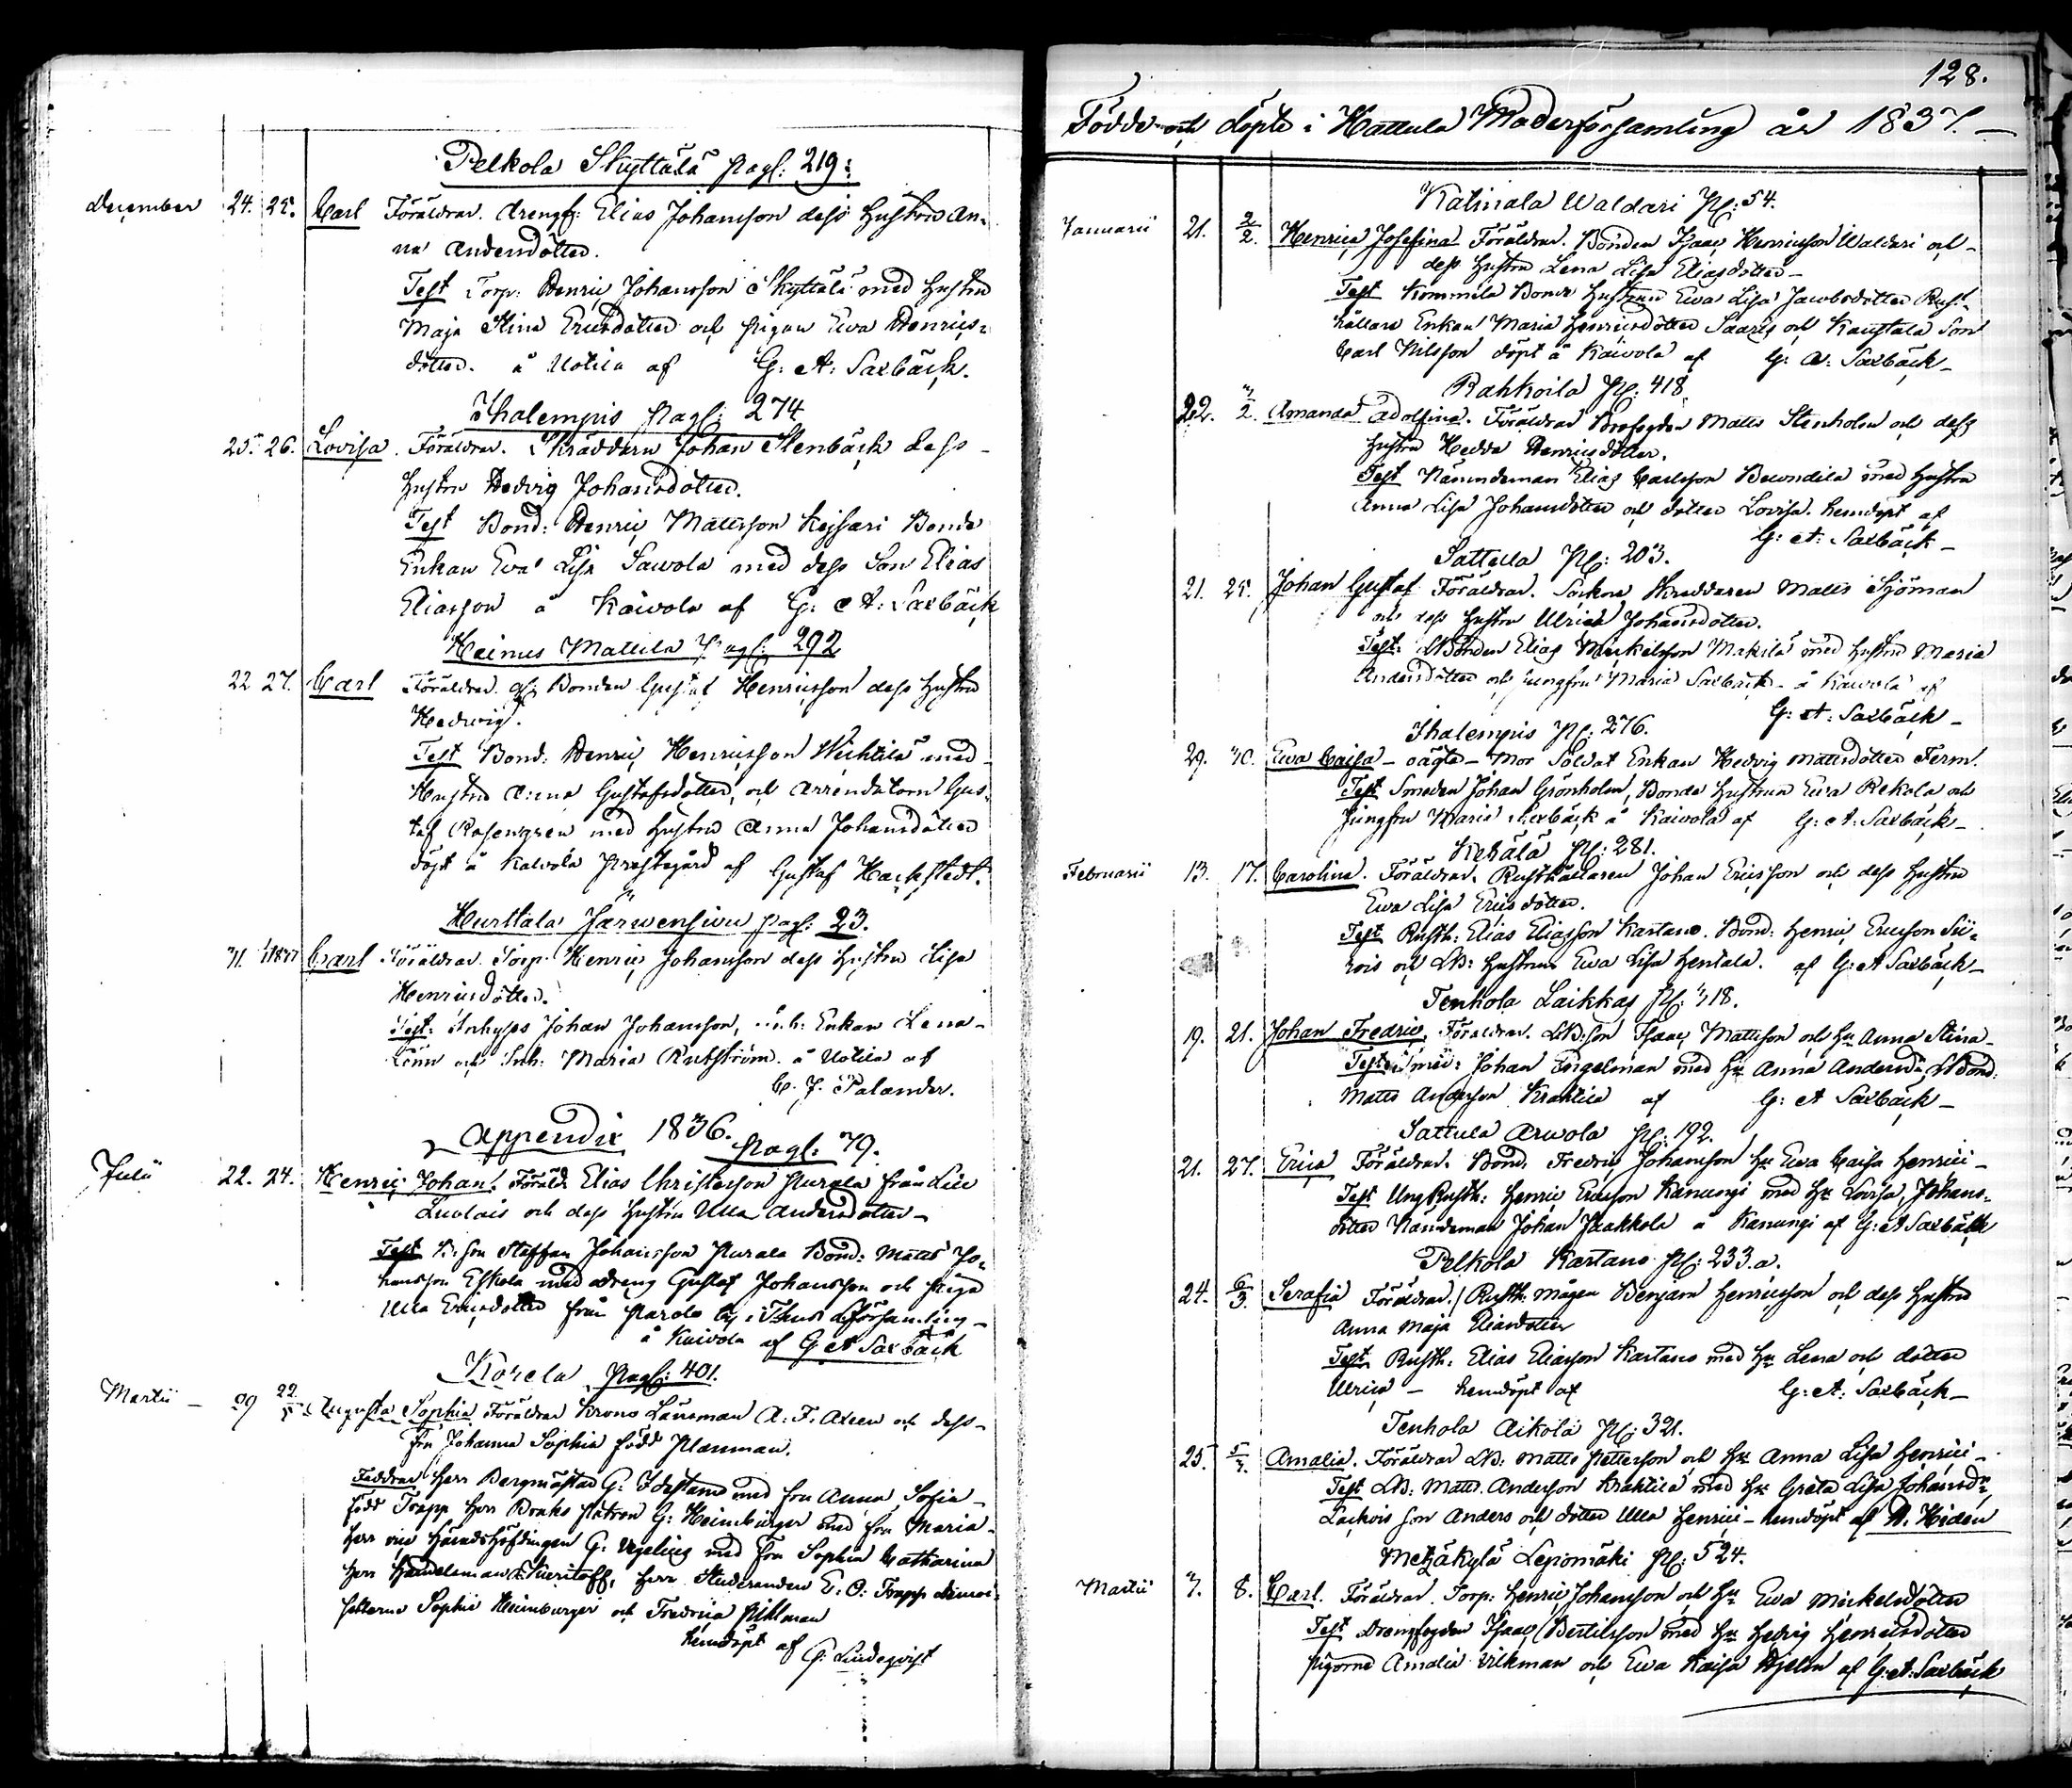 Pelkola Skyttälä pag: 219:
December 24. 25. Carl Föräldrar. drengf: Elias Johansson dess hustru An-
na Andersdotter.
Test Torp: Henric Johansson Skyttälä med hustru
Maja Stina Ericsdotter och pigan Eva Henrics-
dotter. å Uotila af G: A: Saxbäck.
Ihalempis pag: 274
25. 26. Lovisa. Föräldrar. Skräddarn Johan Stenbäck dess
hustru Hedvig Johansdotter.
Test Bond: Henric Mattsson Kejsari Bonde
Enkan Eva Lisa Sawola med dess Son Elias
Eliasson å Kaiwola af G: A: Saxbäck
Heinus Mattila Pag: 292
22 27. Carl Föräldrar. Bonden Gustaf Henricsson dess hustru
Hedwig.
Test Bond: Henric Henricsson Wichtilä med
Hustru Anna Gustafsdotter, och Arrendatorn Gus-
taf Rosengren med hustru Anna Johansdotter
döpt å Kalvola prestegård af Gustaf Hackstedt.
Hurttala Järwensivu pag: 23.
31. Carl Föräldrar. Torp. Henric Johansson dess hustru Lisa
Henricsdotter.
Test: Johan Johansson, Inh: Enkan Lena
och Inh: Maria Rutström. å Uotila af
C. J. Palander.
Appendix 1836.
pag: 79.
Julii 22. 24. Henric Johan. Föräld. Elias Christersson Purala från
och dess hustru Ulla Andersdotter
Test B: son Staffan Johansson Purala Bond: Matts Jo-
hansson Eskola med dreng Gustaf Johansson och piga
Ulla Ericsdotter från Parola by i församling
å Kaivola af G A Saxbäck
Korela Pag: 401.
Martii Augusta Sophia Föräldrar Krono Länsman A: F. och dess
fru Johanna Sophia född Planman.
Faddrar Herr Bergmästar G: Idestam med fru Anna Sofia
född Trapp Herr Bruks patron G: Heimbürger med fru Maria
Herr vice Häradshöfdingen G: med fru Sophia Catharina
Herr Handelsman Herr Studeranden E. O: Trapp demoi-
sellerne Sophie Heimburger och Fredrica Pihlman
hemdöpt af G: Lindeqvist
128.
Födde och döpte i Hattula Moderförsamling år 1837.
Katinala Waldari pg: 54.
Januarii 21. 2/2. Henrica Josefina Föräldrar. Bonden Isaac Henricsson Waldari och
dess hustru Lena Lisa Eliasdotter
Test Kommila Bonde hustrun Ewa Lisa Jacobsdotter Rust-
hållare Enkan Maria Henricsdotter Saaris och Kaustala Son
Carl Nilsson döpt å Kaiwola af G: A: Saxbäck
Rahkoila pg: 418.
22. 3/2. Amanda Adolfina. Föräldrar Brofogden Matts Stenholm och dess
hustru Hedda Henricsdotter.
Test Nämndeman Elias Carlsson med hustru
Anna Lisa Johansdotter och dotter Lovisa. hemdöpt af
G: A: Saxbäck
Sattula pg: 203.
21. 25. Johan Gustaf Föräldrar. Socken Skräddaren Matts Sjöman
och dess hustru Ulrica Johansdotter.
Test: LBonden Elias Mickelsson Makila med hustru Maria
Andersdotter och jungfru Maria Saxbäck å Kaivola af
G: A: Saxbäck
Ihalempis pg: 276.
29. 30. Ewa Caisa oägta Mor Soldat Enkan Hedvig Mattsdotter Ferm.
Test Smeden Johan Grönholm, Bonde hustrun Ewa Rekola och
Jungfru Maria Saxbäck å Kaivola af G: A: Saxbäck
Ketälä pg: 281.
Februarii 13. 17. Carolina. Föräldrar. Rusthållaren Johan Ericsson och dess hustru
Ewa Lisa Ericsdotter.
Test Rusth: Elias Eliasson Kartano. Bond: Henric Ericsson Sii-
rois och LB: hustrun Ewa Lisa Hentala. af G: A Saxbäck
Tenhola Laikkas pg: 318.
19. 21. Johan Fredric. Föräldrar. LB: son Isaac Mattsson och hu Anna Stina
Test Johan Engelman med hu Anna Andersd: LBond:
Matts Andersson Kraktila af G: A Saxbäck
Sattula Arwola pg: 192.
21. 27. Erica Föräldrar. Bond: Fredric Johansson hu Ewa Caisa Henrici
Test Ung Rusth: Henric Ericsson Kanungi med hu Lovisa Johans-
dotter Nämdeman Johan Jaakkola å Kanungi af G: A Saxbäck
Pelkola Kartano pg: 233.a.
24. 6/3. Serafia Föräldrar. Rusth: mågen Benjam Henricsson och dess hustru
Anna Maja Eliasdotter
Test Rusth: Elias Eliasson Kartano med hu Lena och dotter
Ulrica hemdöpt af G: A: Saxbäck
Tenhola Aikola pg: 321.
25. 5/3. Amalia. Föräldrar LB: Matts Pettersson och hu Anna Lisa Henrici
Test LB: Matts Andersson Kraktila med hu Greta Lisa Johansdr
Laikois son Anders och dotter Ulla Henrici hemdöpt af A. Hidén
Metzäkylä Lepomäki pg: 524.
Martii 7. 8. Carl. Föräldrar. Torp: Henric Johansson och hu Ewa Mickelsdotter
Test Drengfogden Isaac Bertilsson med hu Hedvig Henricsdotter
pigorne Amalia Wikman och Ewa Kaisa Hjelm af G: A: Saxbäck